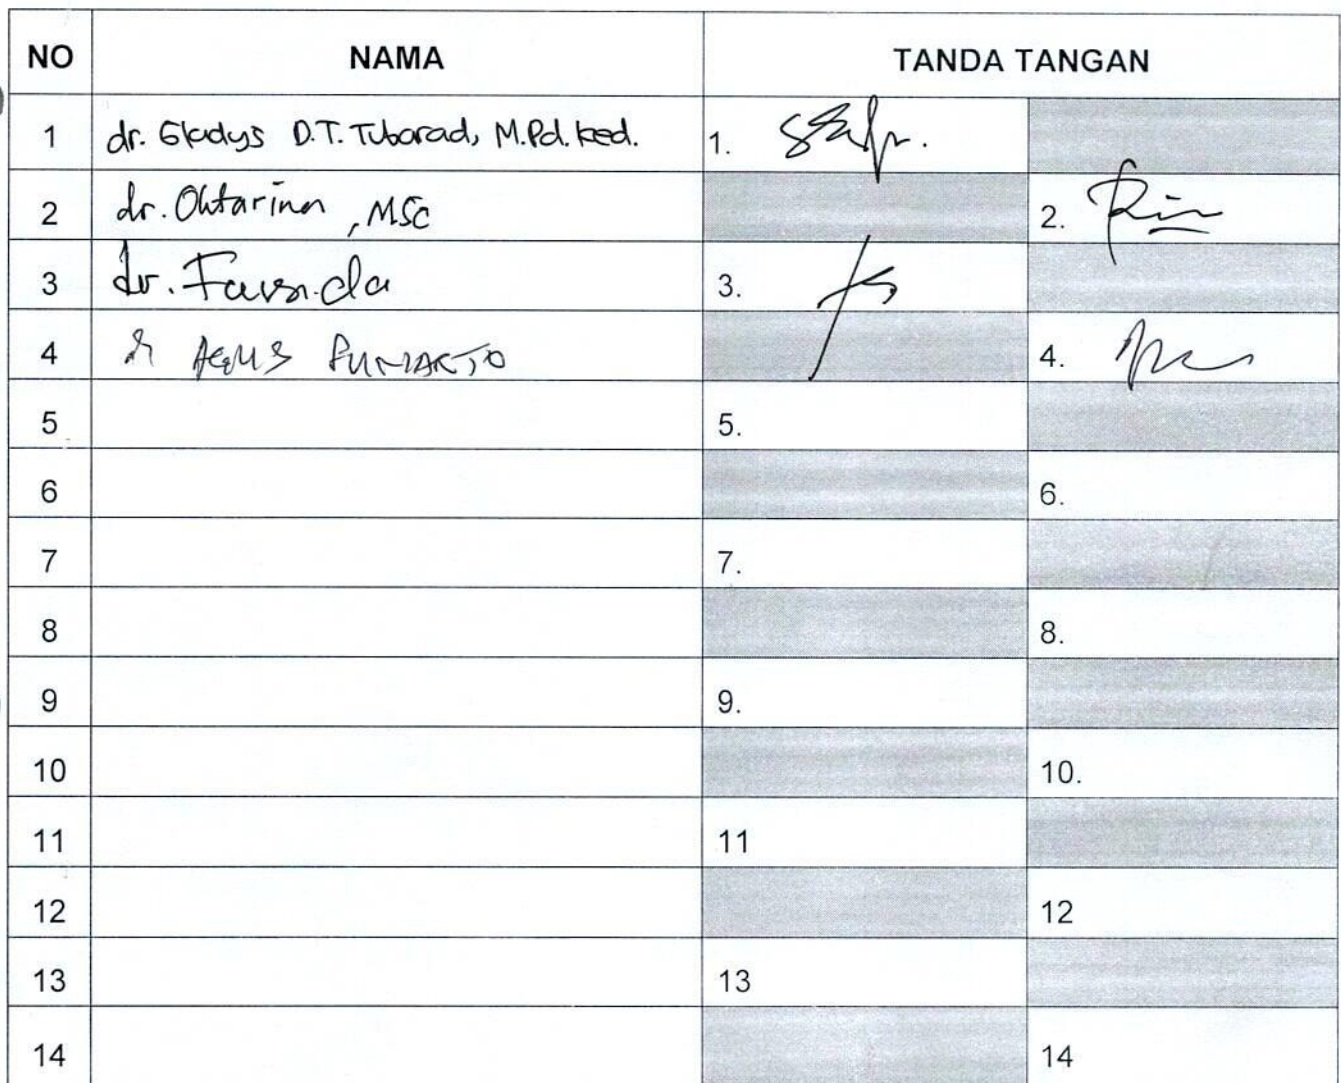 NO NAMA TANDA TANGAN
1 dr. Gladys D.T. Tubarad, M.Pd.Ked. 1.
2 dr. Oktarina, MSc 2.
3 dr. Farida 3.
4 dr AGUS 4.
5 5.
6 6.
7 7.
8 8.
9 9.
10 10.
11 11
12 12
13 13
14 14